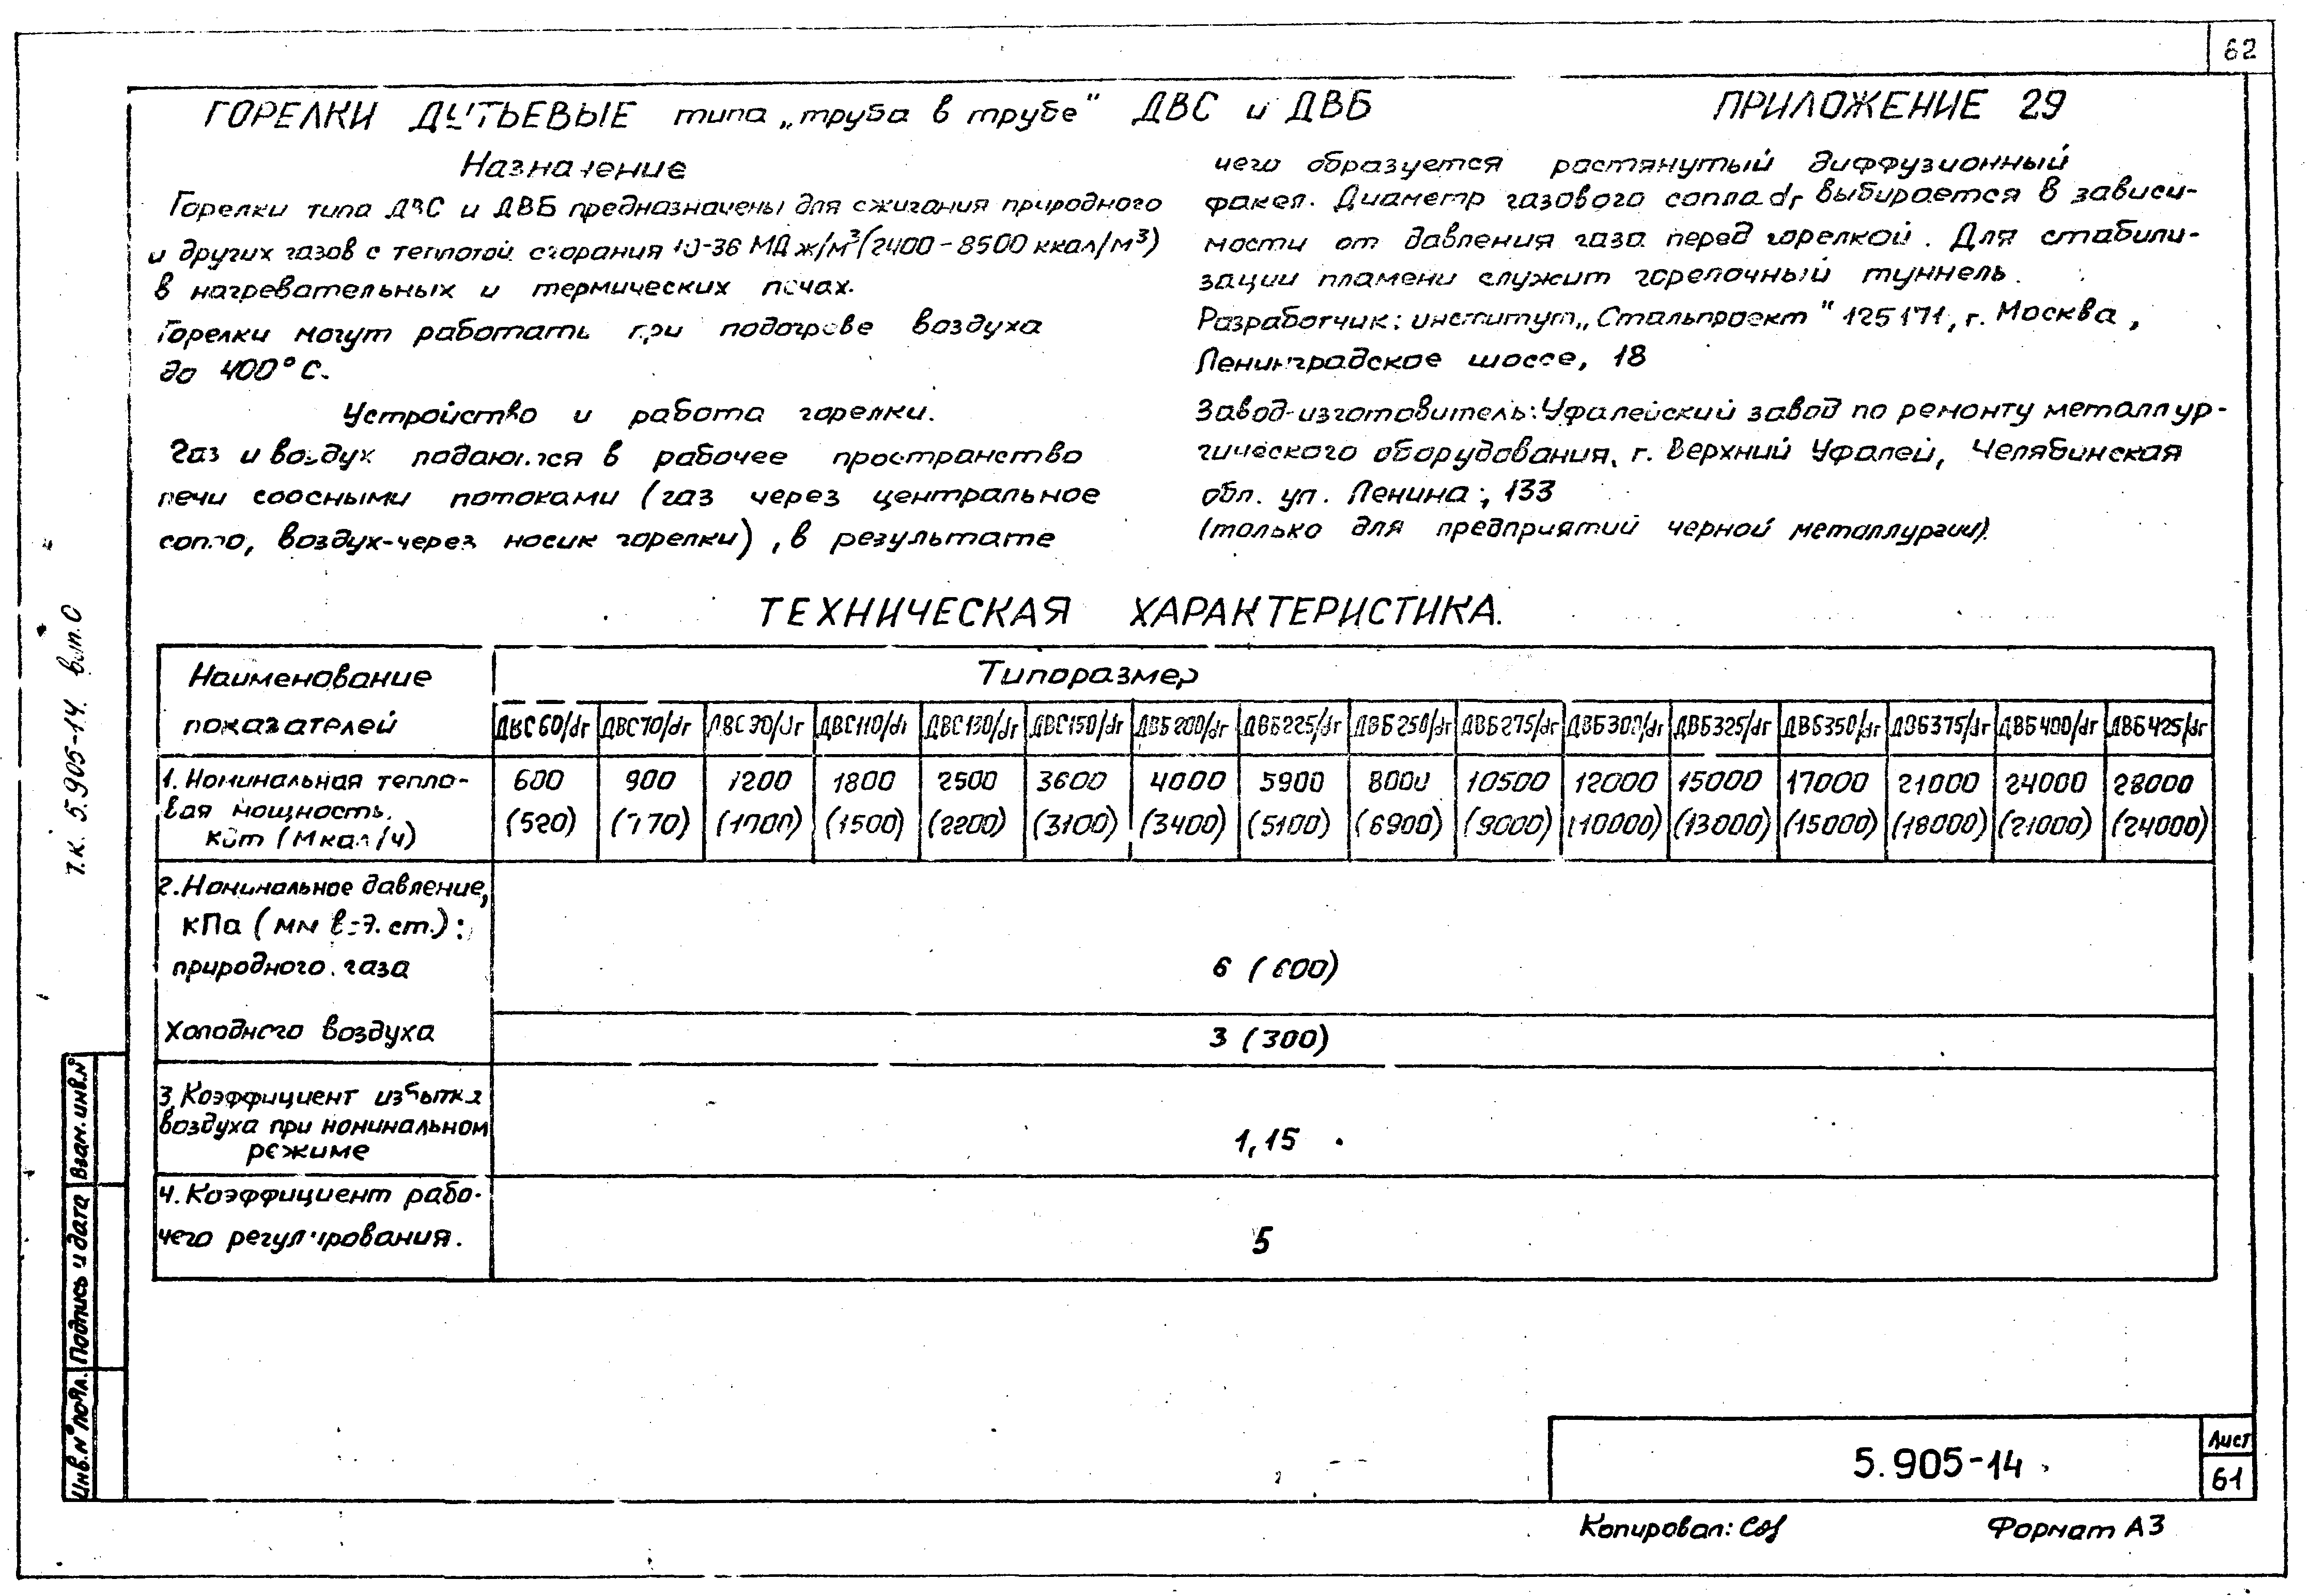 62
ГОРЕЛКИ ДУТЬЕВЫЕ типа „труба в трубе" ДВС и ДВБ
ПРИЛОЖЕНИЕ 29
Назначение
Горелки типа ДВС и ДВБ предназначены для сжигания природного
и других газов с теплотой сгорания 10-36 МДж/м³ (2400-8500 ккал/м³)
в нагревательных и термических печах.
Горелки могут работать при подогреве воздуха
до 400°С.
Устройство и работа горелки.
Газ и воздух подаются в рабочее пространство
печи соосными потоками (газ через центральное
сопло, воздух-через носик горелки), в результате
чего образуется растянутый диффузионный
факел. Диаметр газового сопла dг выбирается в зависи-
мости от давления газа перед горелкой. Для стабили-
зации пламени служит горелочный туннель.
Разработчик: институт „Стальпроект" 125171, г. Москва,
Ленинградское шоссе, 18
Завод-изготовитель: Уфалейский завод по ремонту металлур-
гического оборудования, г. Верхний Уфалей, Челябинская
обл. ул. Ленина, 133
(только для предприятий черной металлургии).
ТЕХНИЧЕСКАЯ ХАРАКТЕРИСТИКА.
Наименование показателей
Типоразмер
ДВС 60/dг ДВС 70/dг ДВС 90/dг ДВС 110/dг ДВС 130/dг ДВС 150/dг ДВБ 200/dг ДВБ 225/dг ДВБ 250/dг ДВБ 275/dг ДВБ 300/dг ДВБ 325/dг ДВБ 350/dг ДВБ 375/dг ДВБ 400/dг ДВБ 425/dг
1. Номинальная тепло-
вая мощность,
кВт (Мкал/ч)
600 900 1200 1800 2500 3600 4000 5900 8000 10500 12000 15000 17000 21000 24000 28000
(520) (770) (1000) (1500) (2200) (3100) (3400) (5100) (6900) (9000) (10000) (13000) (15000) (18000) (21000) (24000)
2. Номинальное давление,
кПа (мм вод. ст.):
природного газа
6 (600)
Холодного воздуха
3 (300)
3. Коэффициент избытка
воздуха при номинальном
режиме
1,15
4. Коэффициент рабо-
чего регулирования.
5
Т.К. 5.905-14. вып. 0
Взам. инв. №
Подпись и дата
Инв. № подл.
5.905-14
Лист
61
Копировал:
Формат А3